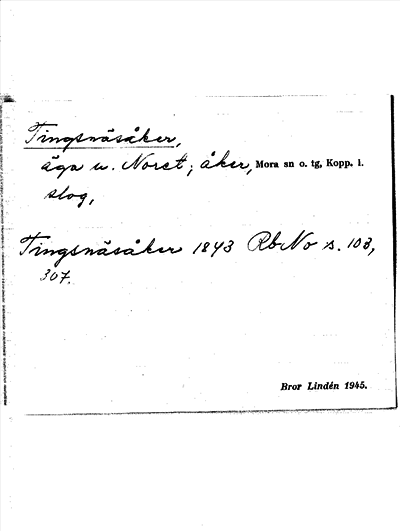 Tingsnäsåker,
äga u. Noret; åker, Mora sn o. tg, Kopp. l.
slog,
Tingsnäsåker 1843 Rb No s. 103,
307.
Bror Lindén 1945.